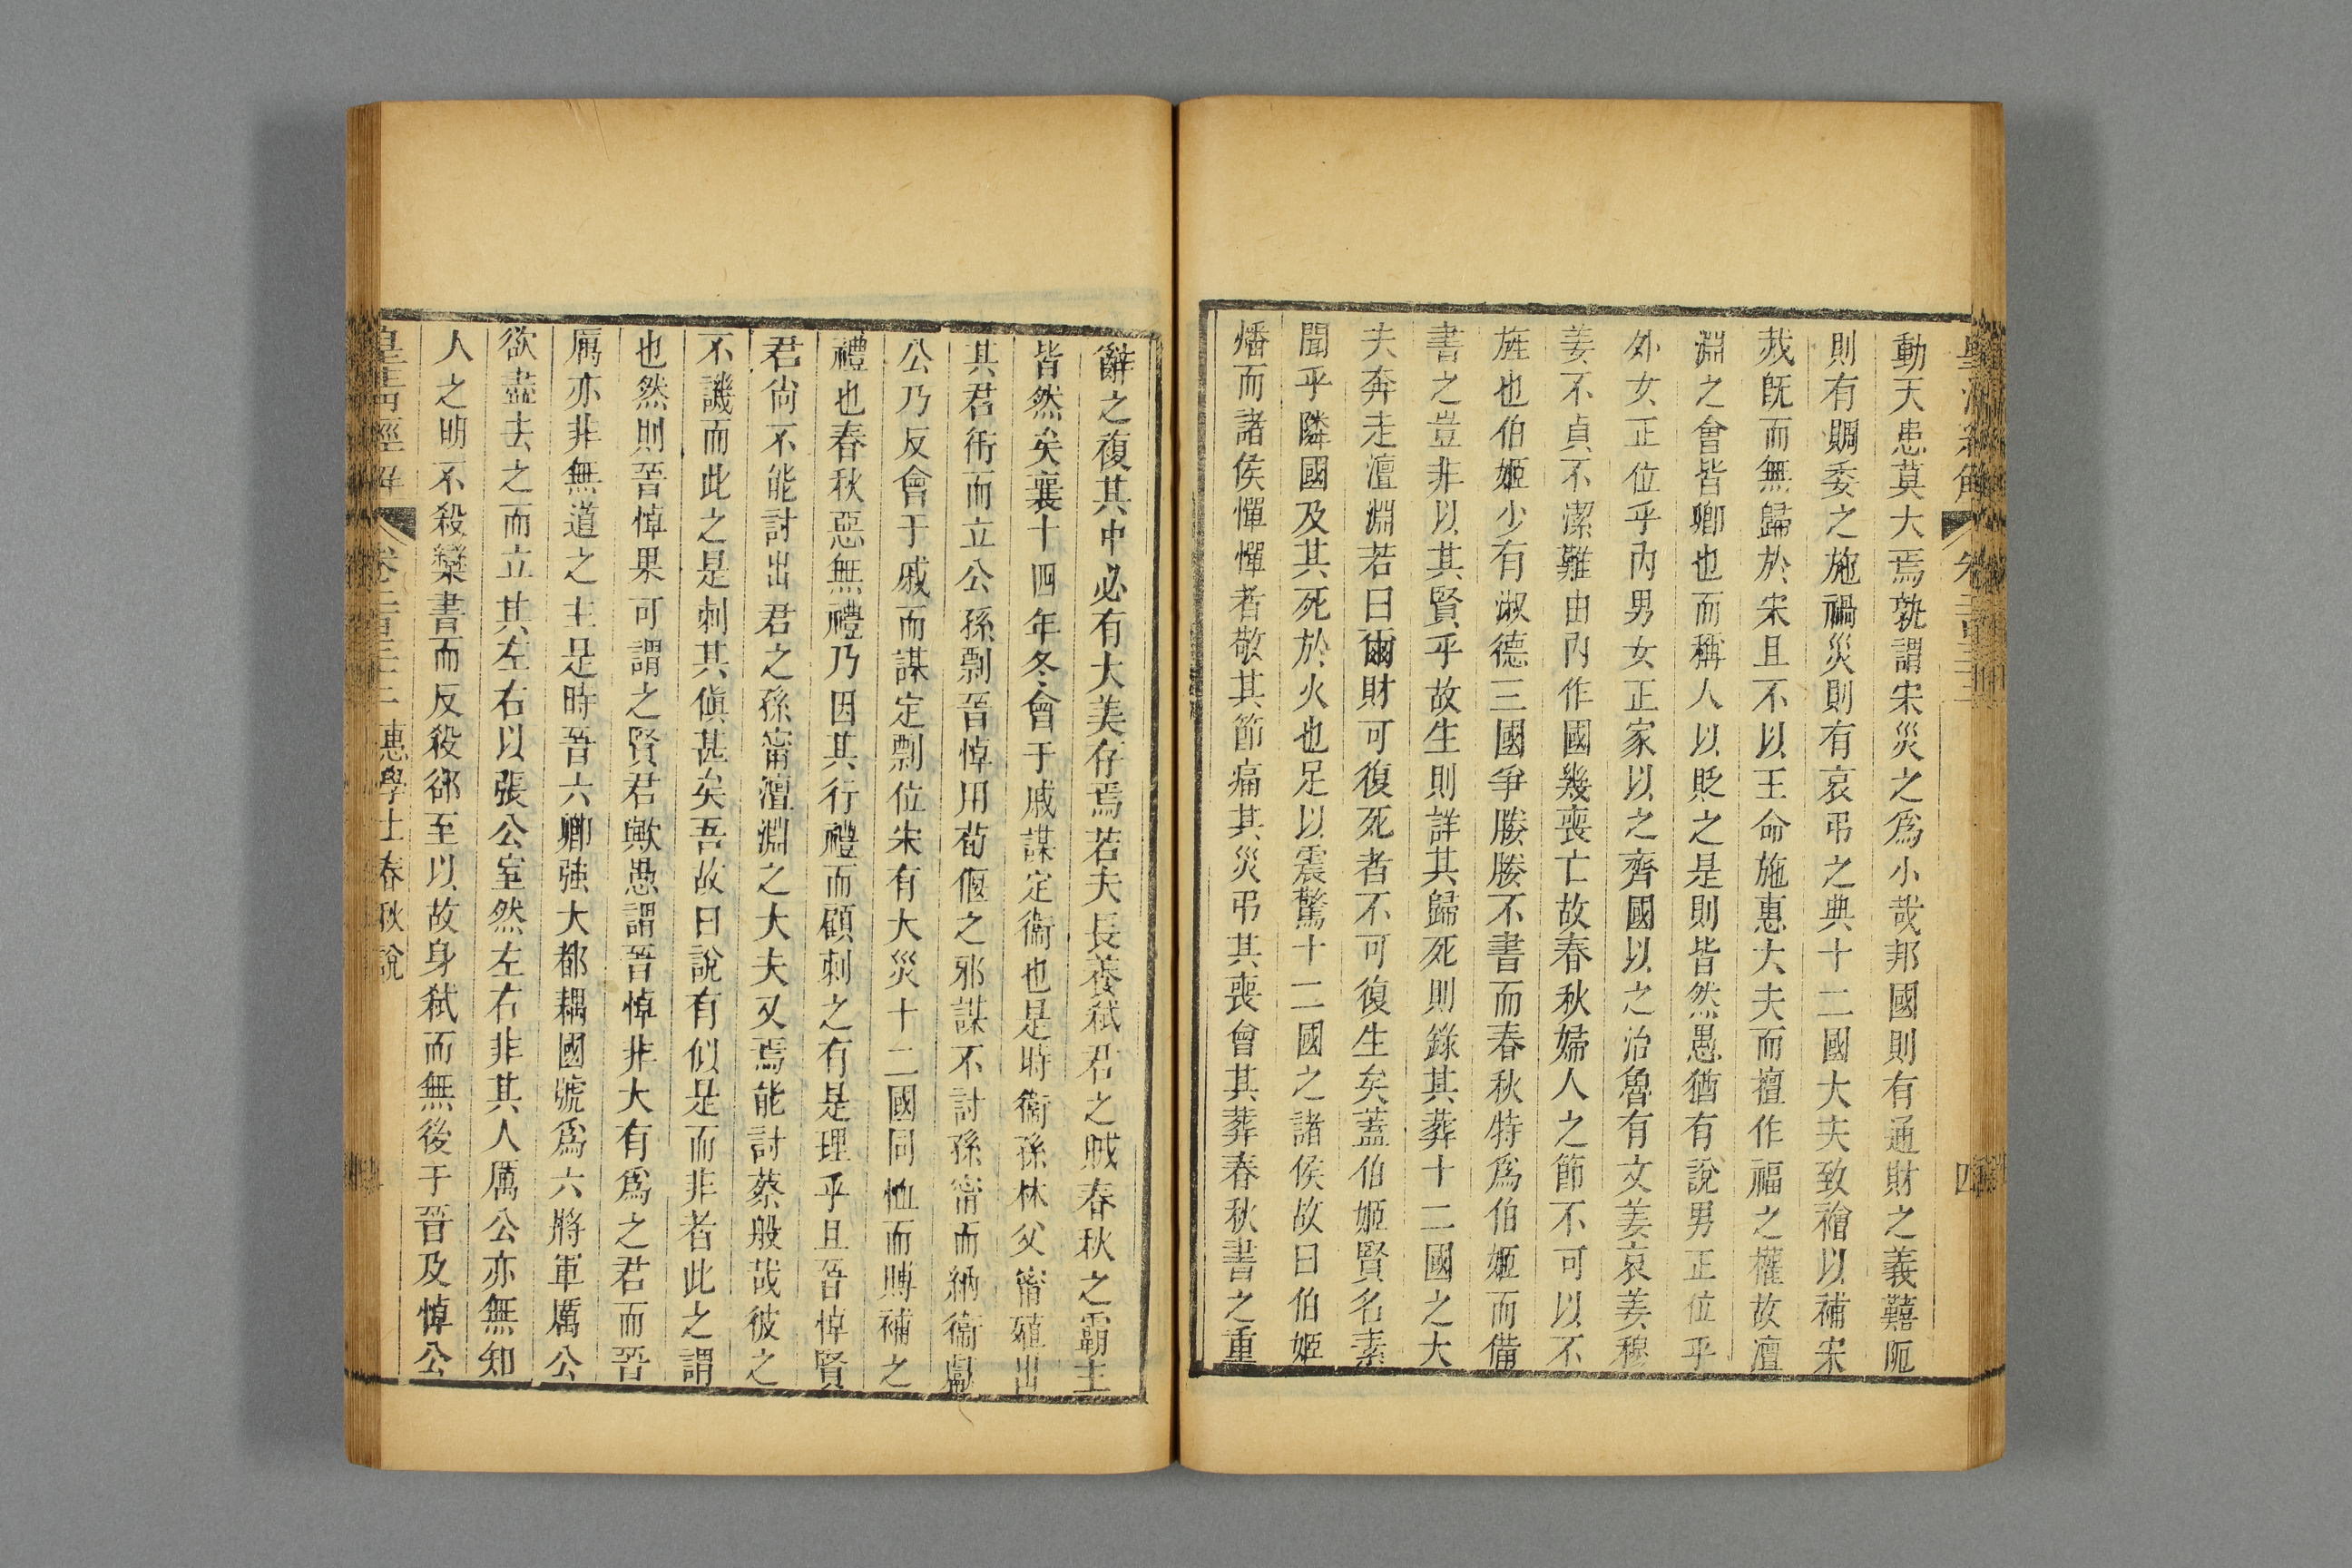 動天患莫大焉孰謂宋災之爲小哉邦國則有通財之義囏阨
則有賙委之施禍災則有哀弔之典十二國大夫致襘以補宋
烖旣而無歸於宋且不以王命施惠大夫而擅作福之權故澶
淵之會皆卿也而稱人以貶之是則皆然愚猶有說男正位乎
外女正位乎內男女正家以之齊國以之治魯有文姜哀姜穆
姜不貞不潔難由內作國幾喪亡故春秋婦人之節不可以不
旌也伯姬少有淑德三國爭媵媵不書而春秋特爲伯姬而備
書之豈非以其賢乎故生則詳其歸死則錄其葬十二國之大
夫奔走澶淵若曰爾財可復死者不可復生矣蓋伯姬賢名素
聞乎隣國及其死於火也足以震驚十二國之諸侯故曰伯姬
燔而諸侯憚憚者敬其節痛其災弔其喪會其葬春秋書之重
四
辭之複其中必有大美存焉若夫長養弒君之賊春秋之霸主
皆然矣襄十四年冬會于戚謀定衞也是時衞孫林父甯殖出
其君衎而立公孫剽晉悼用荀偃之邪謀不討孫甯而納衞獻
公乃反會于戚而謀定剽位宋有大災十二國同恤而賻補之
禮也春秋惡無禮乃因其行禮而顧刺之有是理乎且晉悼賢
君尙不能討出君之孫甯澶淵之大夫又焉能討蔡般哉彼之
不譏而此之是刺其傎甚矣吾故曰說有似是而非者此之謂
也然則晉悼果可謂之賢君歟愚謂晉悼非大有爲之君而晉
厲亦非無道之主是時晉六卿强大都耦國號爲六將軍厲公
欲盡去之而立其左右以張公室然左右非其人厲公亦無知
人之明不殺欒書而反殺郤至以故身弒而無後于晉及悼公
皇淸經解 卷二百三十二 惠學士春秋說